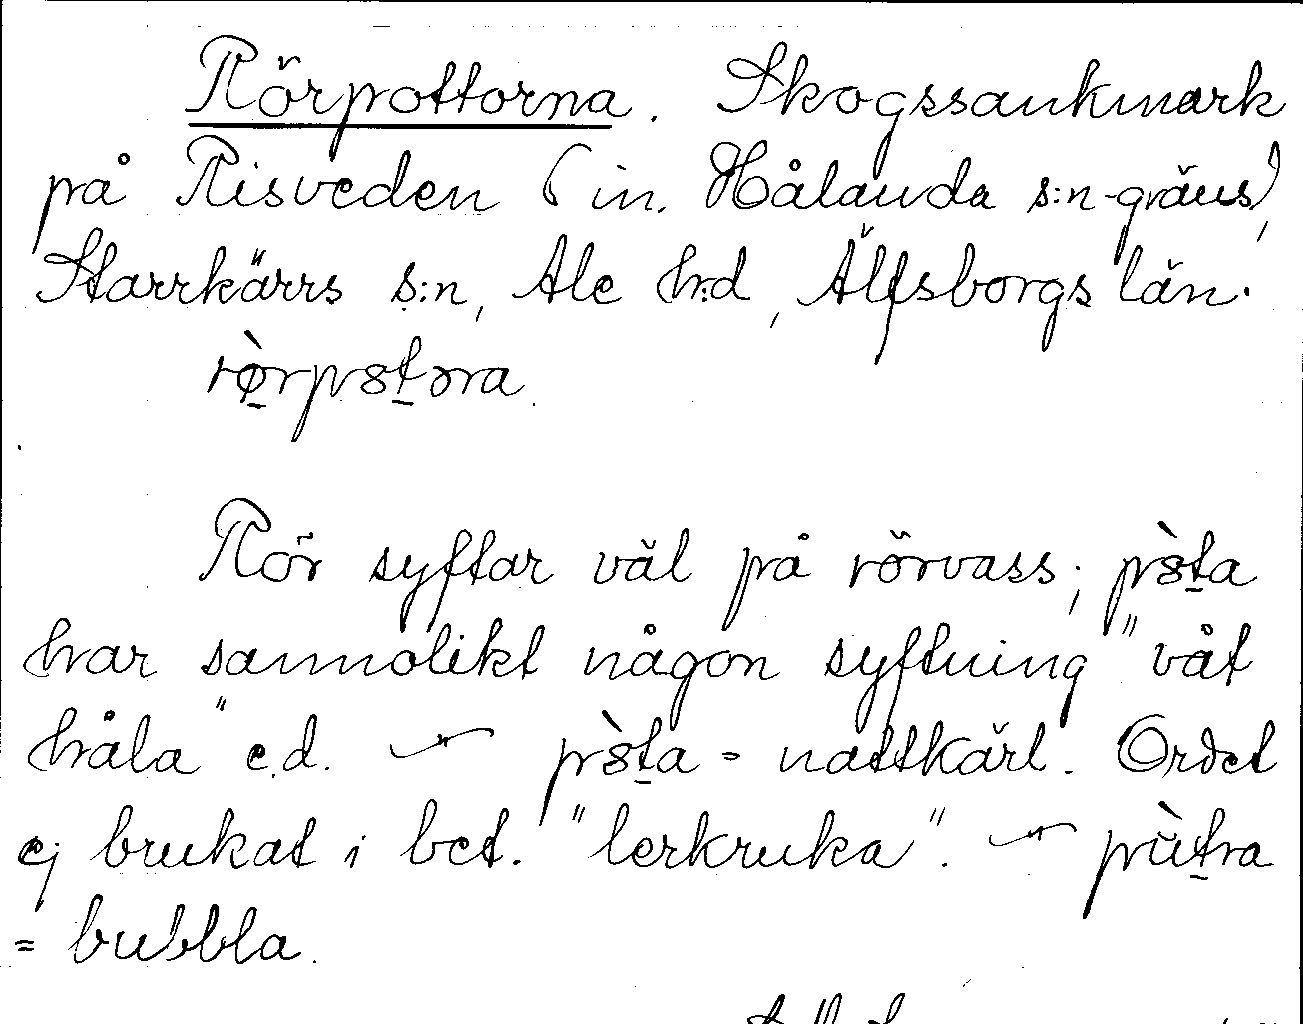 Rörpottorna. Skogssankmark
på Risveden (in. Hålanda s:n-gräns),
Starrkärrs s:n, Ale h:d, Älfsborgs län.
rø̀rpɤtɔra.
Rör syftar väl på rörvass; pɤ̀ta
har sannolikt någon syftning "våt
håla" e.d. — pɤ̀ta = nattkärl. Ordet
ej brukat i bet. "lerkruka". — pùtra
= bubbla.